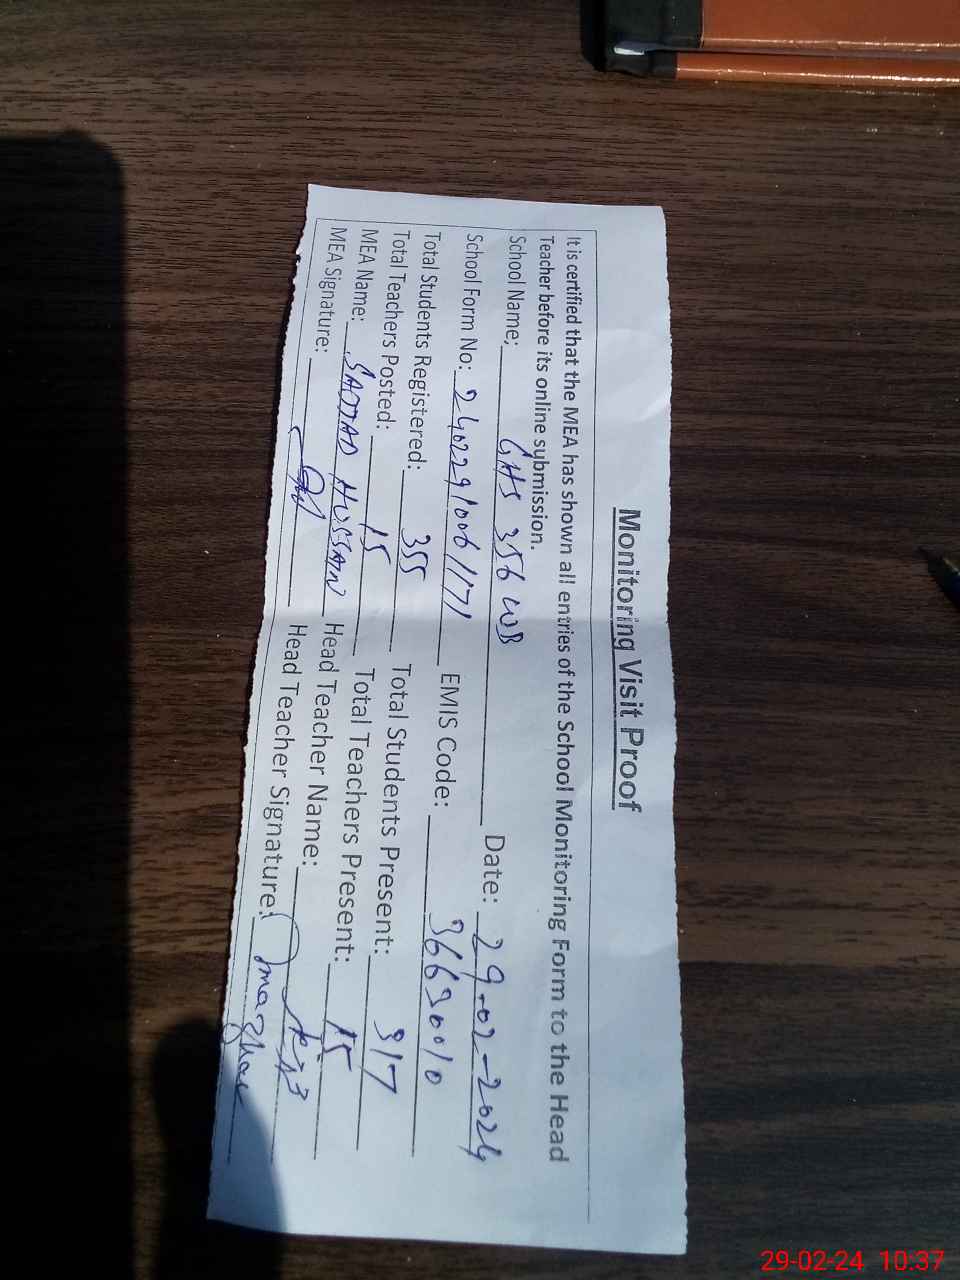 Monitoring Visit Proof
It is certified that the MEA has shown all entries of the School Monitoring Form to the Head
Teacher before its online submission.
School Name; GHS 356 WB Date: 29-02-2024
School Form No: 24022910061171 EMIS Code: 36630010
Total Students Registered: 355 Total Students Present: 317
Total Teachers Posted: 15 Total Teachers Present: 15
MEA Name: SAJJAD HUSSAIN Head Teacher Name:
MEA Signature: Head Teacher Signature:
29-02-24 10:37